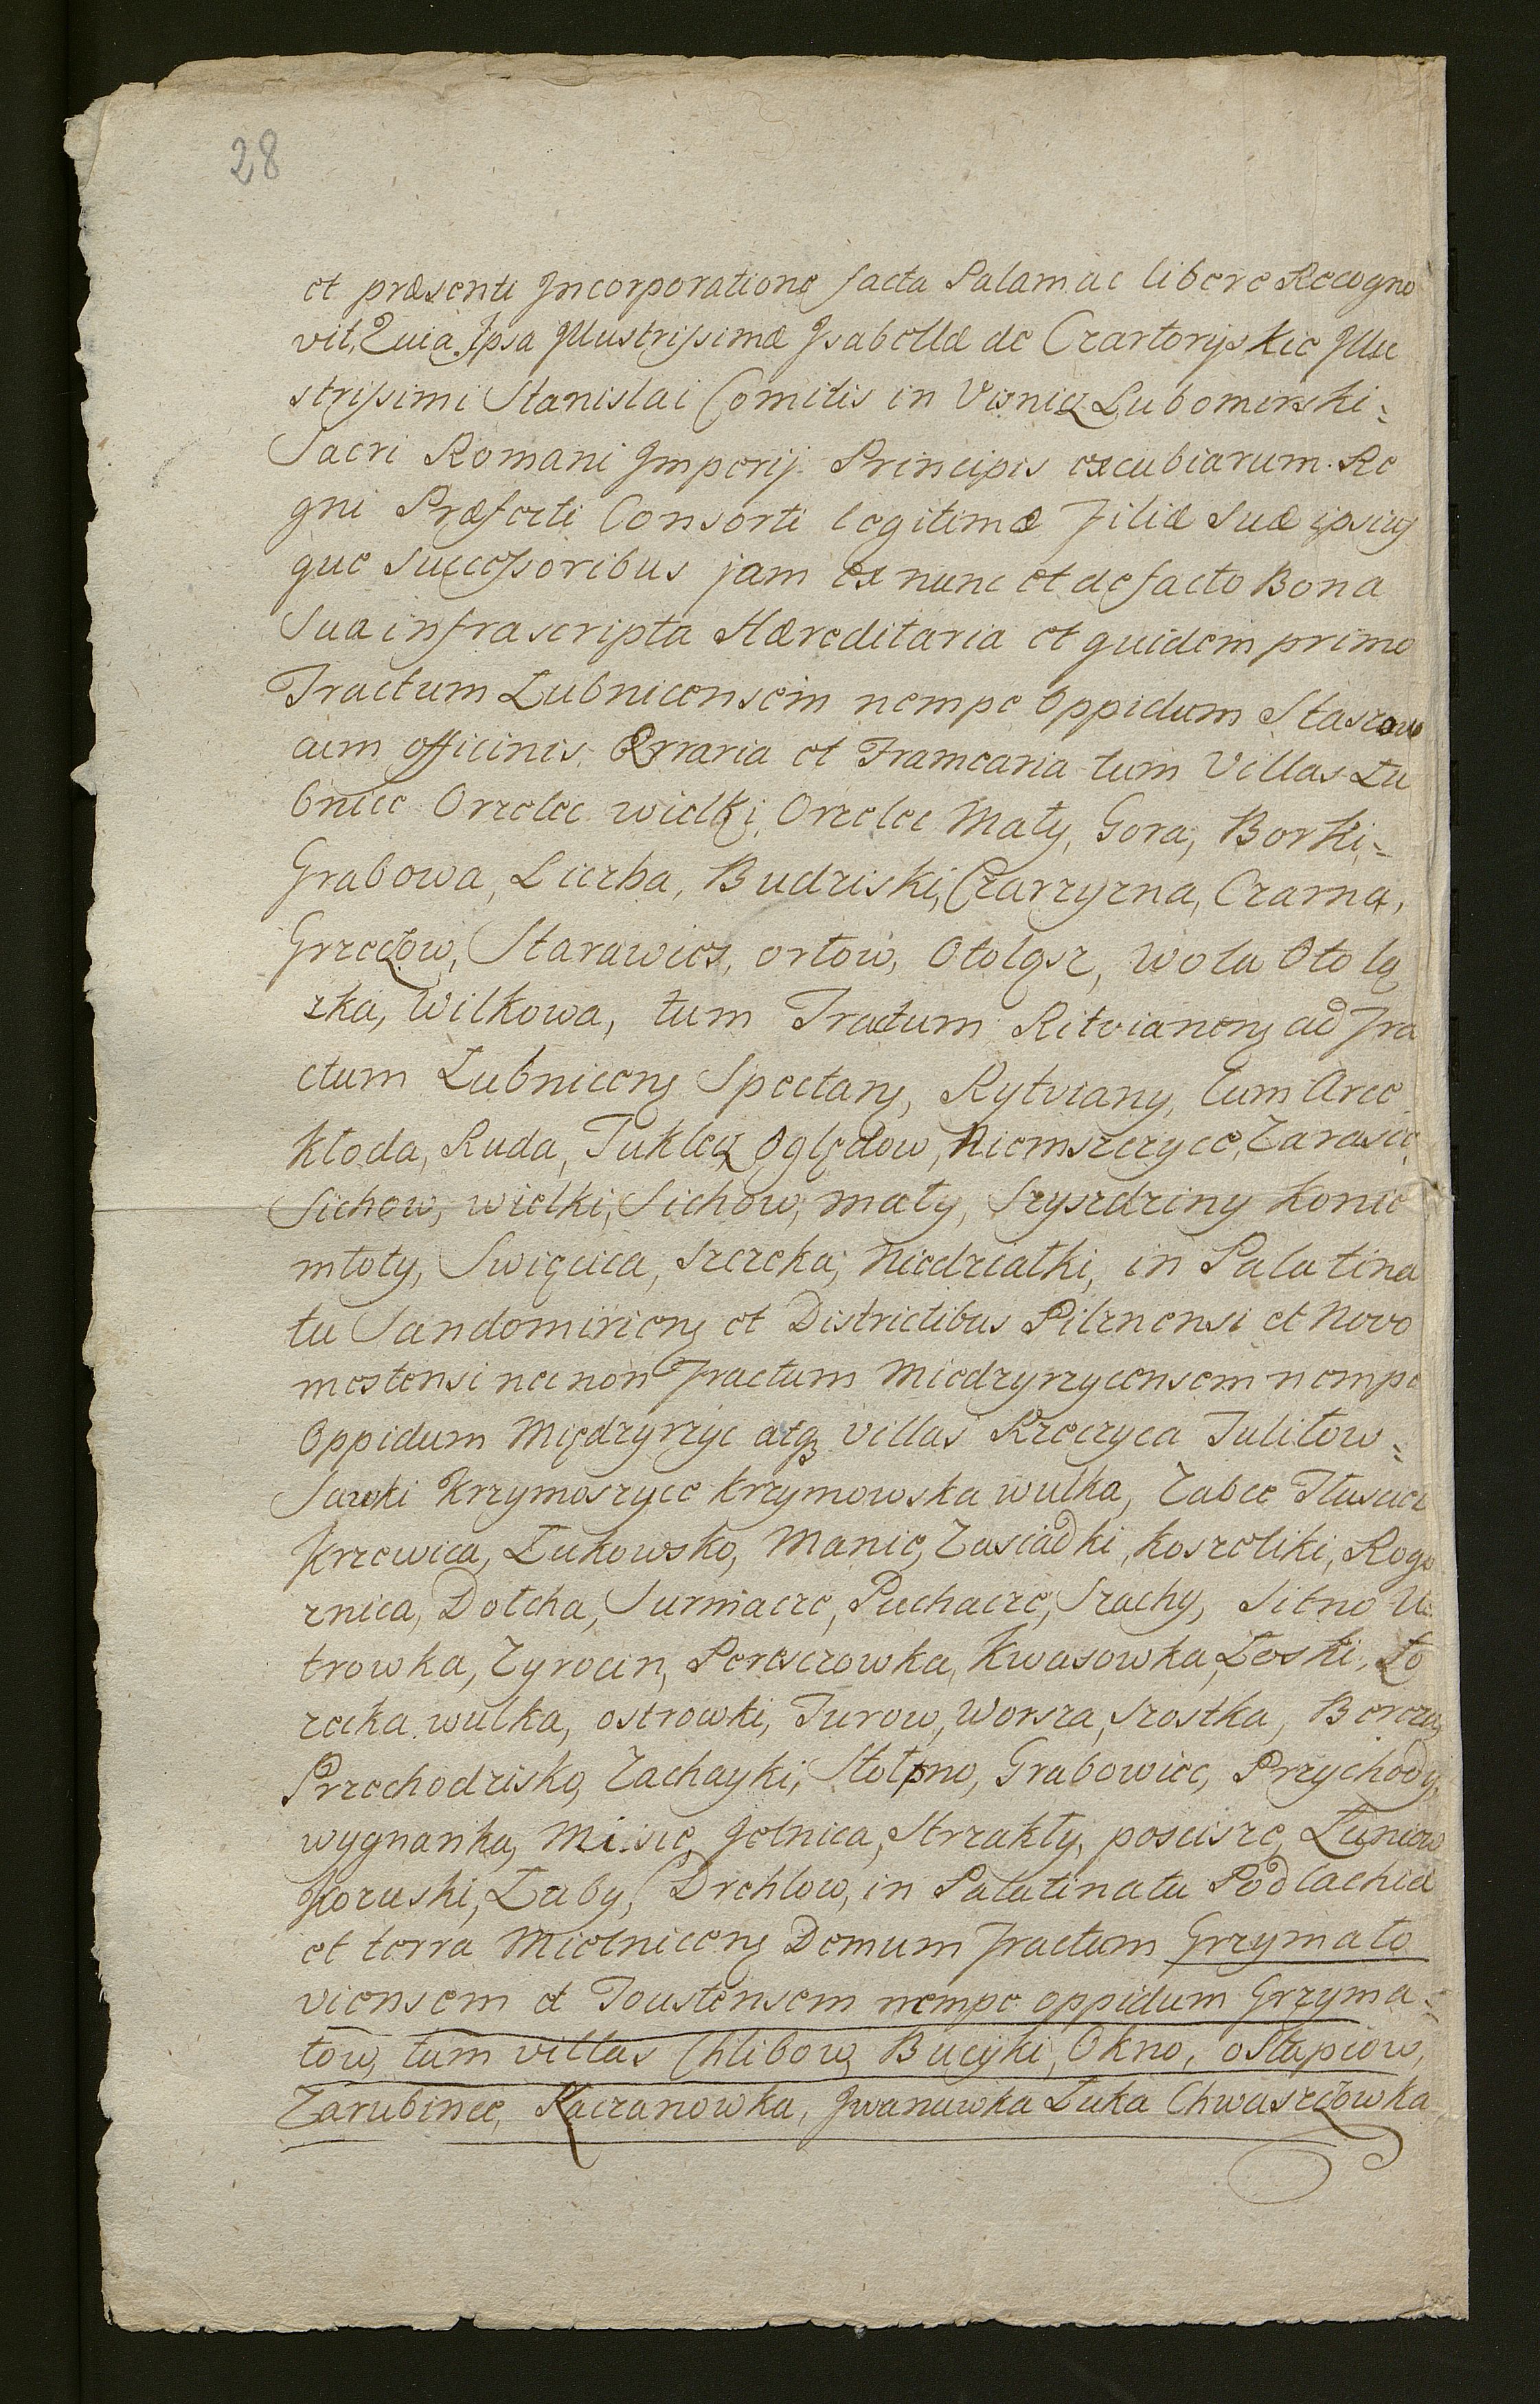 28
et præsenti Incorporatione facta Palam ac libere Recogno
vit, Quia Ipsa Illustrissimæ Isabellæ de Czartoryskie Illu
strissimi Stanislai Comitis in Visnicz Lubomirski
Sacri Romani Imperij Principis excubiarum Re
gni Præfecti Consorti legitimæ Filiæ Suæ ipsiusq
que Successoribus jam ex nunc et de facto Bona
Sua infrascripta Hæreditaria et quidem primo
Tractum Łubnicensem nempe Oppidum Staszow
cum officinis Æraria et Framearia tum Villas Łu
bnice Orzelec wielki, Orzelec Mały, Gora, Borki,
Grabowa, Liczba, Budziski, Czarzyzna, Czarna,
Grzęzow, Starawies, orłow, Otoląsz, wola Otolą
zka, Wilkowa, tum Tractum Ritvianens ad Tra
ctum Łubnicens Spectans, Rytviany, Cum Arce
Kłoda, Ruda, Tuklęcz Oględow, Niemszczyce, Zarasie,
Sichow, wielki, Sichow, mały, Szyszdziny Konie
młoty, Swięcica, szczeka, Niedziałki, in Palatina
tu Sandomiriens et Districtibus Pilznensi et Novo
mestensi nec non Tractum Miedzyrzycensem nempe
Oppidum Międzyrzyc atq villas Rzeczyca Tulitow
Sawki Krzymoszyce Krzymowska wulka, Zabce Tłusciec
Krzewica, Łukowsko, Manie, Zasiadki, Koszeliki, Rogo
znica, Dołcha, Surmacze, Puchacze, Szachy, Sitno U
trowka, Zyrocin, Pereszczowka, Kwasowka, Łoski, Ło
zecka wulka, ostrowki, Turow, Worsza, szostka, Bereza,
Przechodzisko, Zachayki, Stołpno, Grabowiec, Przychody,
wygnanka, Misie, Jelnica, Strzakły, poscisze, Łuniew
Kozuski, Łuby, Drehlow, in Palatinatu Podlachiæ
et terra Mielnicens Demum Tractum Grzymało
viensem et Toustensem nempe oppidum Grzyma
łow, tum villas Chlibow, Bucyki, Okno, ostapiow,
Zarubince, Kaczanowka, Iwanuwka Łuka Chwaszczowka